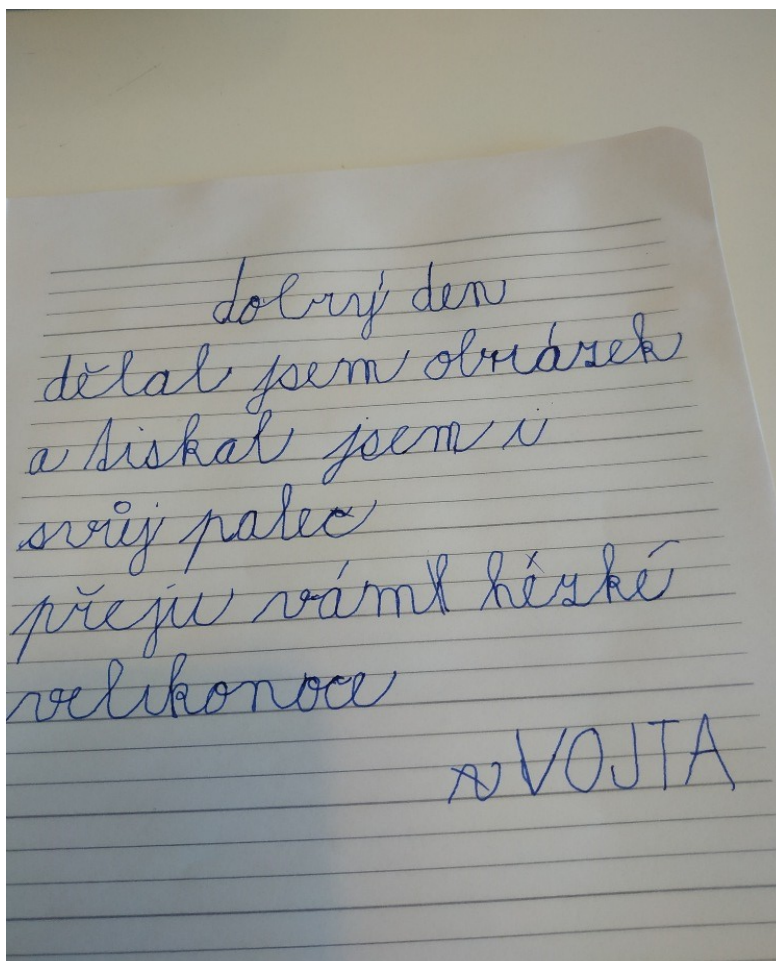 dobrý den
dělal jsem obrázek
a tiskal jsem i
svůj palec
přeju vám hézké
velikonoce
VOJTA